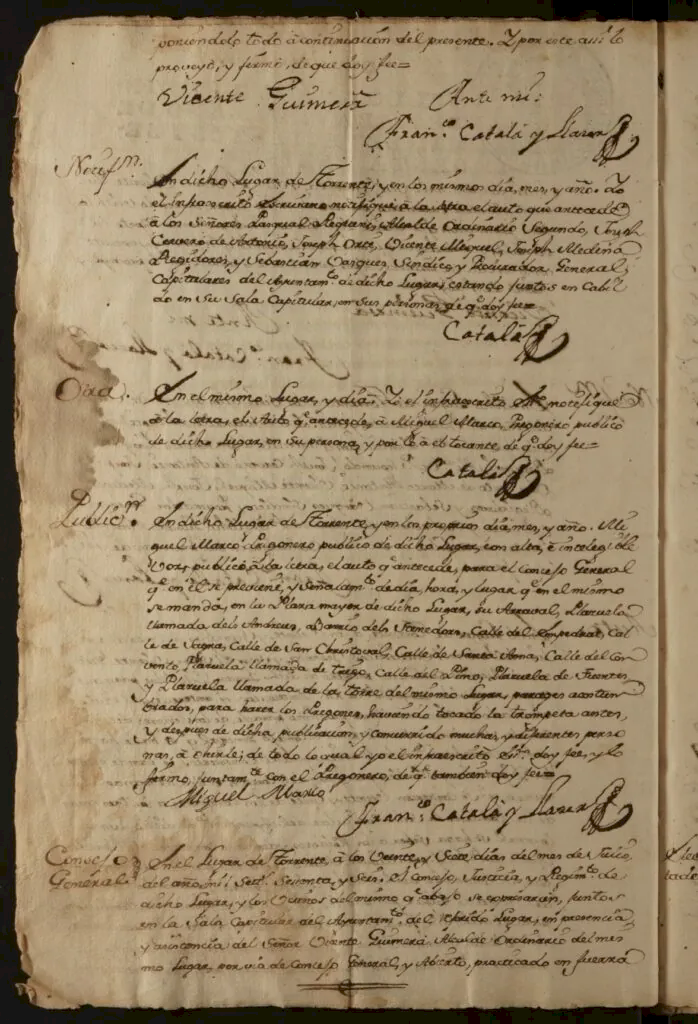 poniendolo todo à continuacion del presente. Y por este auto lo
proveyó, y firmó, de que doy fee=
Vicente Guimerá Ante mi:
Fran.co Catalá y Llacer
Notif.n
En dicho Lugar de Torrente, y en los mismos dia, mes, y año. Yo
el infraescrito Escrivano notifiqué à la letra el auto que antecede
à los Señores Pasqual Alcalde Ordinario Segundo, Joseph
Cervero de Antonio, Joseph Orti, Vicente Miquel, Joseph Medina
Regidores, y Sebastian Vasques Sindico, y Procurador General,
Capitulares del Ayuntam.to de dicho Lugar, estando juntos en Cabil
do en Su Sala Capitular, en sus personas de q.e doy fee=
Catalá
Otra.
En el mismo Lugar, y dia. Yo el infraescrito Ess.no notifiqué
à la letra, el Auto q.e antecede, à Miguel Marco, Pregonero publico
de dicho Lugar, en su persona, y por lo à el tocante, de q.e doy fee=
Catalá
Public.n
En dicho Lugar de Torrente, y en los proprios dia, mes, y año. Mi
guel Marco, Pregonero publico de dicho Lugar, con alta, è inteligible
Voz, publicó, à la letra, el auto q.e antecede, para el Consejo General
q.e en el se previene, y Señalam.to de dia, hora, y lugar q.e en el mismo
se manda, en la Plaza mayor de dicho Lugar, su Arraval, Plazuela
llamada dels Andreus, Barrio dels Calle del Cal
le de Calle de San Christoval, Calle de Santa Anna, Calle del Con
vento, Plazuela llamada de Calle del Plazuela de Fuentes
y Plazuela llamada de la torre del mismo Lugar, parages acostum
brados, para hazer los Pregones, haviendo tocado la trompeta antes,
y despues de dicha publicacion, y concurrido muchas, y diferentes perso
nas, à ohirle; de todo lo qual yo el infraescrito Ess.no doy fee, y lo
firmo, juntam.te con el Pregonero, de q.e tambien doy fee=
Miguel Marco
Fran.co Catalá y Llacer
Consejo
General
En el Lugar de Torrente, à los Veinte, y Siete dias del mes de
del año mil Set.s Sesenta, y Seis. El Consejo, Justicia, y Regim.to de
dicho Lugar, y los Vecinos del mismo q.e abajo se expresarán, juntos
en la Sala Capitular del Ayuntam.to del referido Lugar, en presencia,
y asistencia del Señor Vicente Guimerá Alcalde Ordinario del mes
mo Lugar, por via de Consejo General, y Abierto, practicado en fuerza